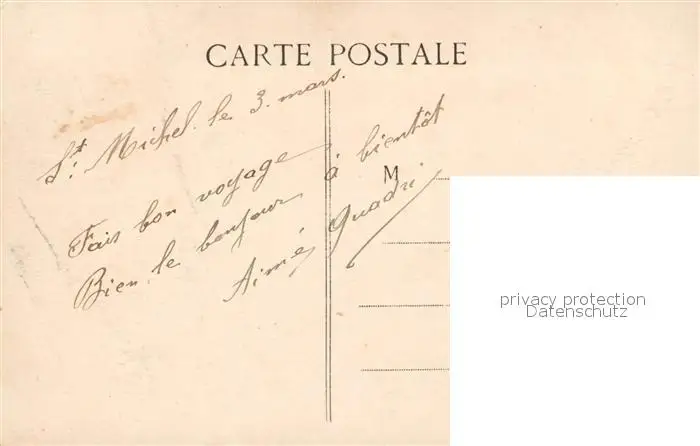 CARTE POSTALE
St. Michel le 3. mars.
Fais bon voyage
Bien le bonjour à bientôt
Aimé Quadri
M
privacy protection
Datenschutz